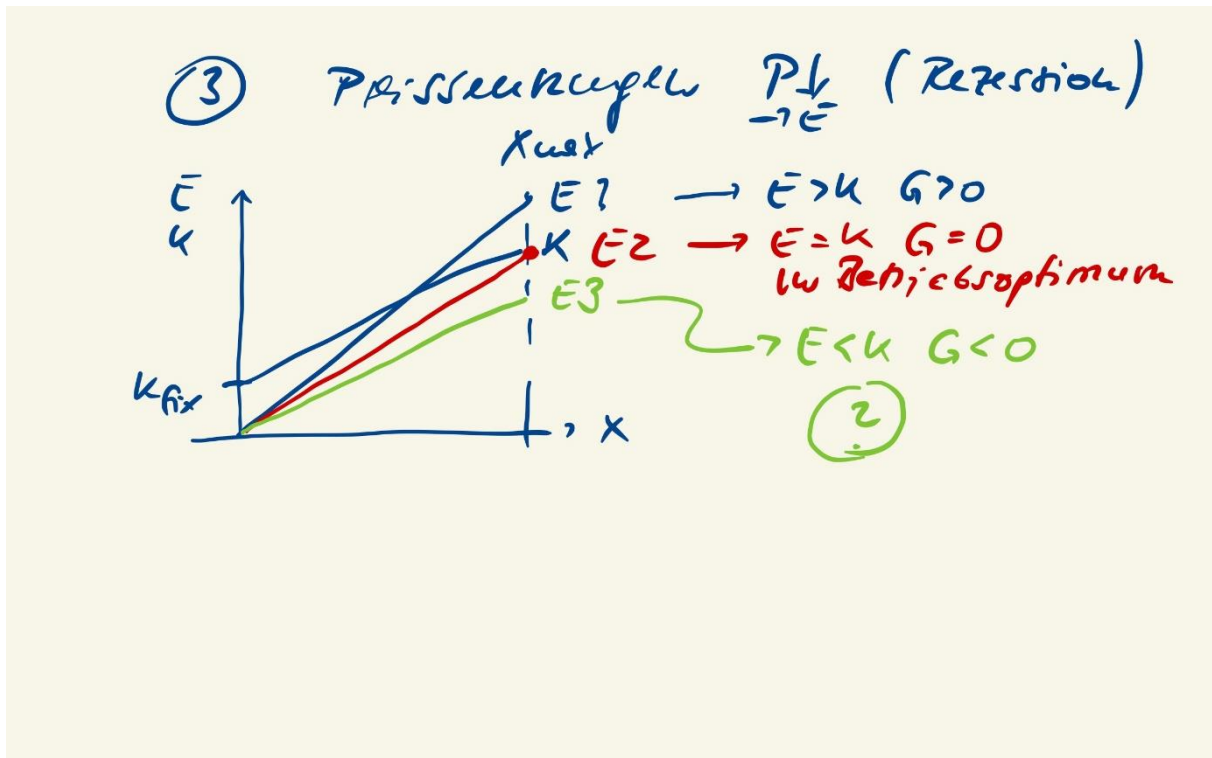 ③ Preissenkungen P↓ (Rezession)
→ E
xmax
E
K
E1 → E>K G>0
K E2 → E=K G=0
im Betriebsoptimum
E3 → E<K G<0
Kfix
→ x